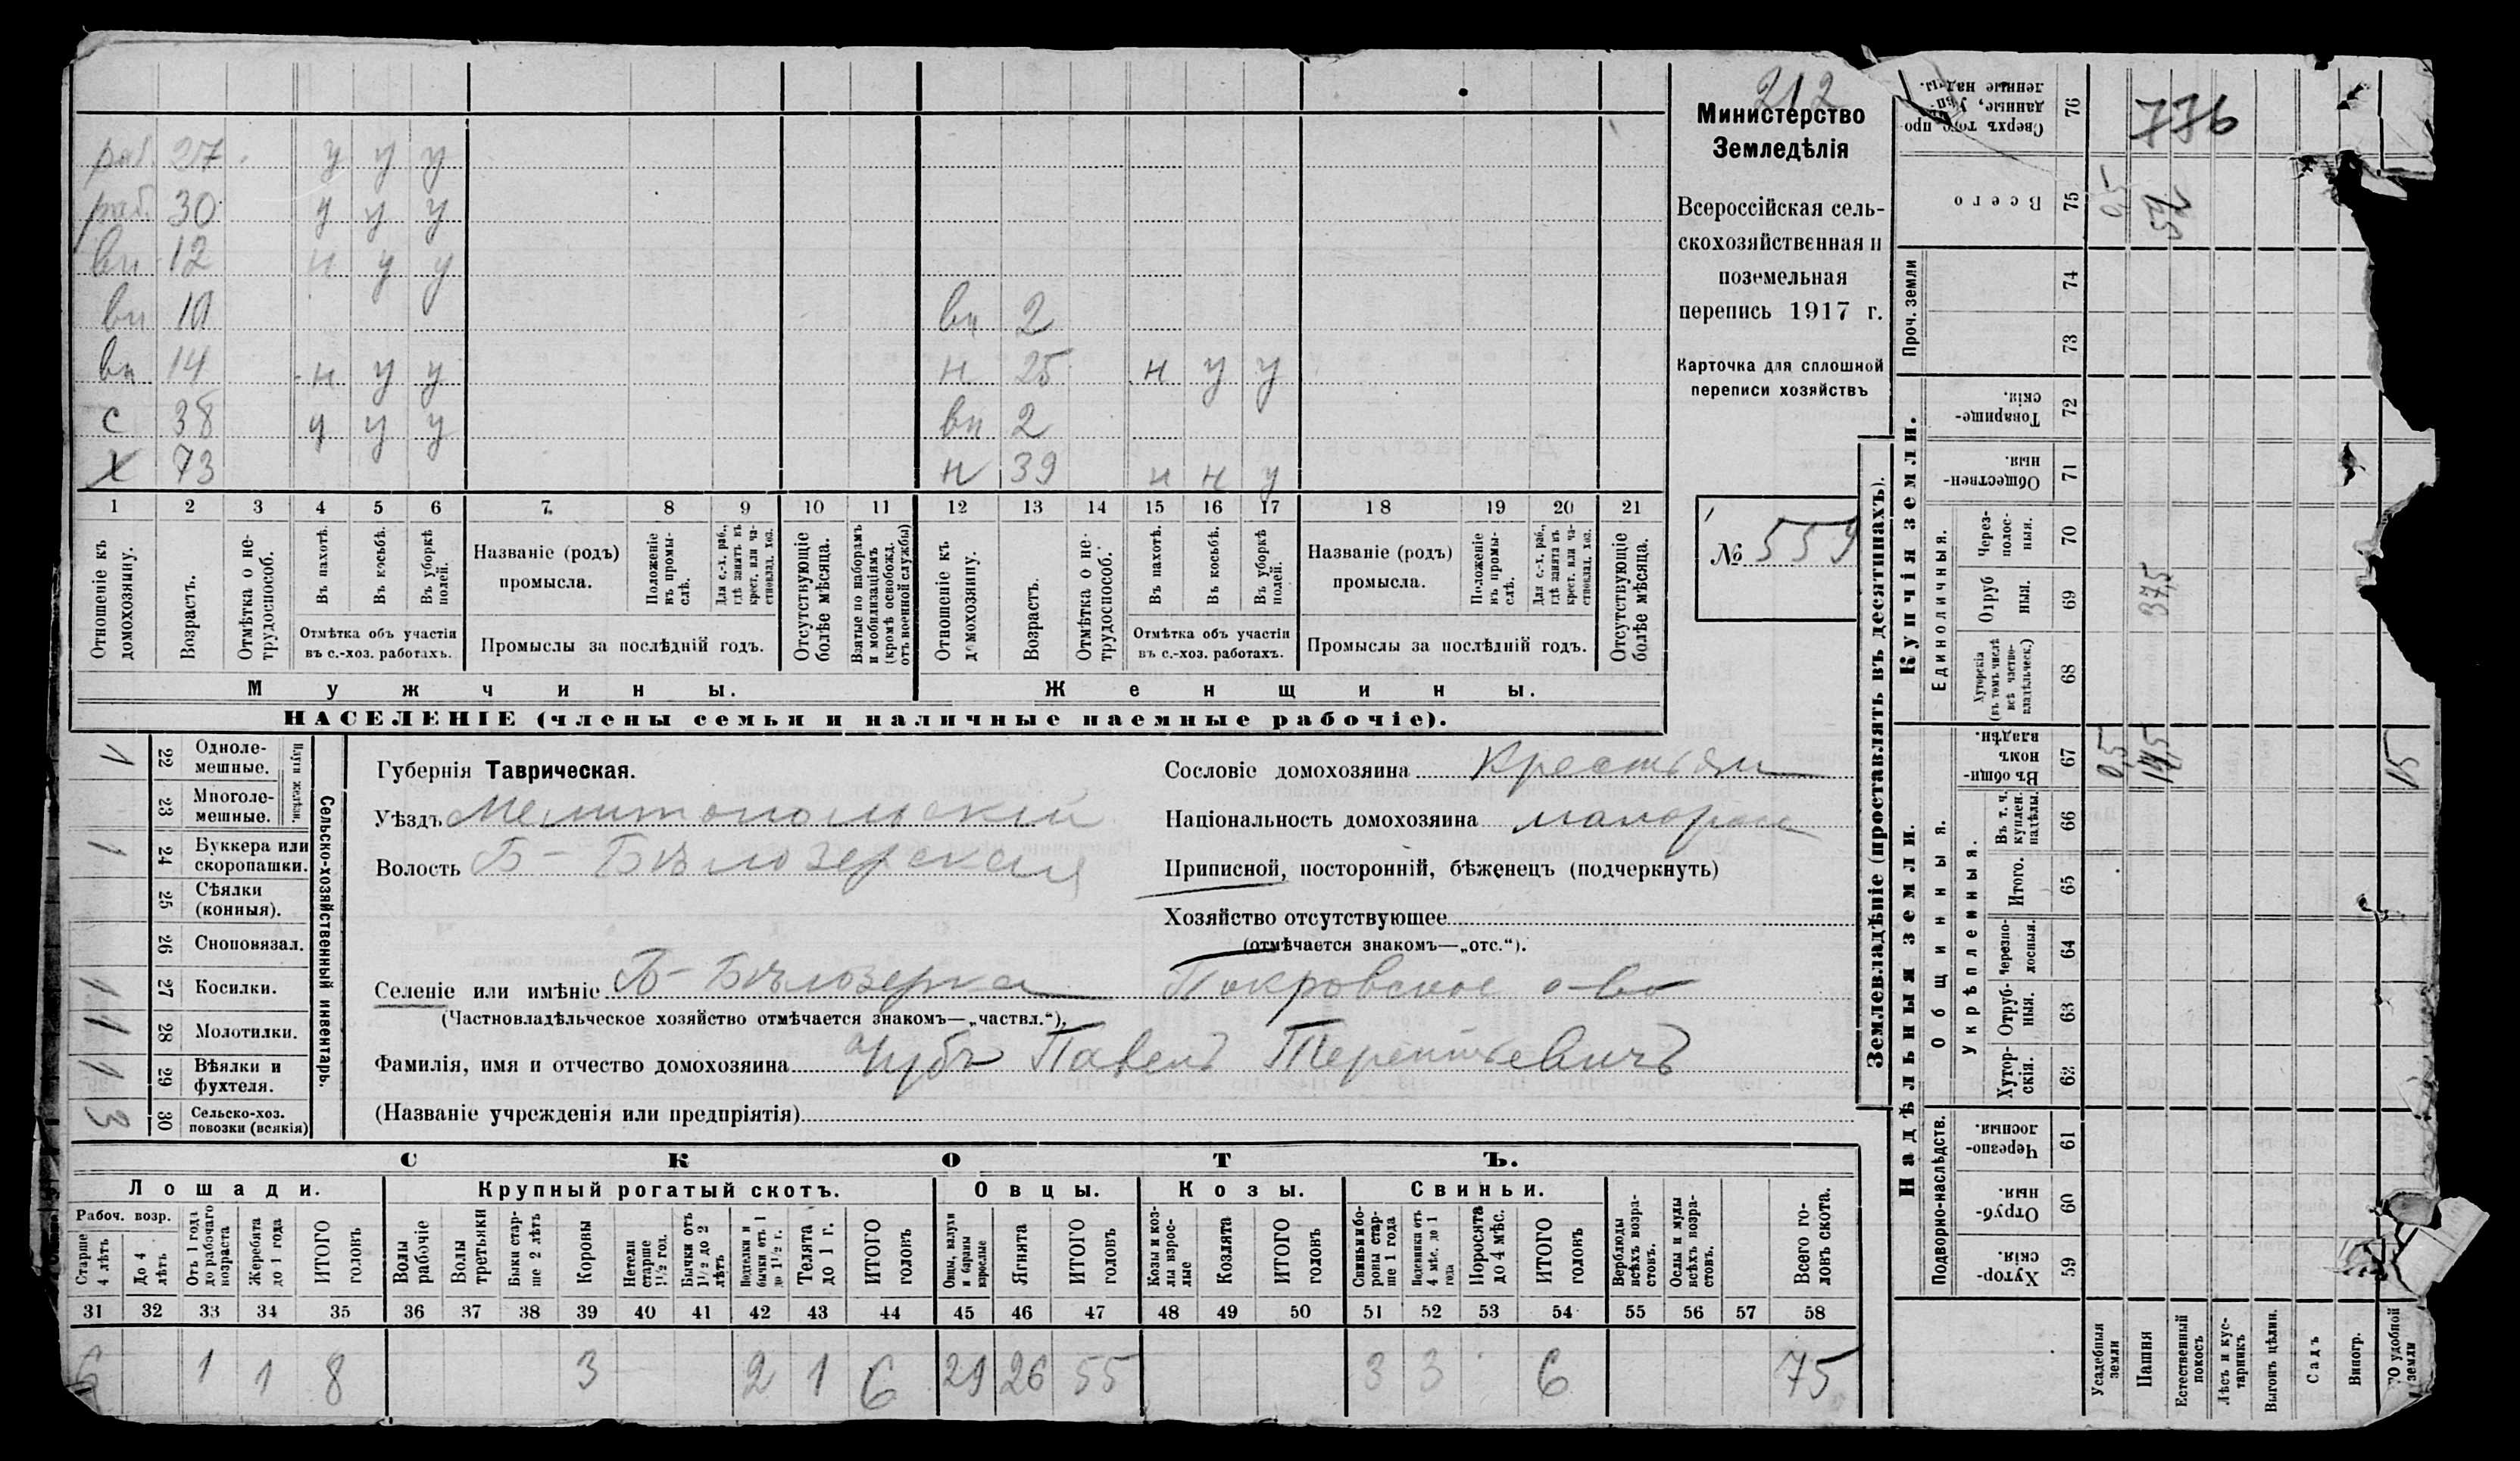 212
Министерство
Земледѣлія
Всероссійская сель-
скохозяйственная и
поземельная
перепись 1917 г.
Карточка для сплошной
переписи хозяйствъ
№ 559
раб. 27 у у у
раб. 30 у у у
вн 12 н у у
вн 10 вн 2
вн 14 н у у н 25 н у у
с 38 у у у вн 2
х 73 н 39 н н у
1 2 3 4 5 6 7 8 9 10 11 12 13 14 15 16 17 18 19 20 21
Отношеніе къ домохозяину.
Возрастъ.
Отмѣтка о не-трудоспособ.
Въ пахотѣ.
Въ косьбѣ.
Въ уборкѣ полей.
Отмѣтка объ участіи
въ с.-хоз. работахъ.
Названіе (родъ)
промысла.
Положеніе въ промы-слѣ.
Для с.-х. раб., гдѣ занятъ въ крест. или ча-стновлад. хоз.
Промыслы за послѣдній годъ.
Отсутствующіе болѣе мѣсяца.
Взятые по наборамъ и мобилизаціямъ (кромѣ освобожд. отъ военной службы)
Отношеніе къ домохозяину.
Возрастъ.
Отмѣтка о не-трудоспособ.
Въ пахотѣ.
Въ косьбѣ.
Въ уборкѣ полей.
Отмѣтка объ участіи
въ с.-хоз. работахъ.
Названіе (родъ)
промысла.
Положеніе въ промы-слѣ.
Для с.-х. раб., гдѣ занята въ крест. или ча-стновлад. хоз.
Промыслы за послѣдній годъ.
Отсутствующіе болѣе мѣсяца.
Мужчины. Женщины.
НАСЕЛЕНІЕ (члены семьи и наличные наемные рабочіе).
Сельско-хозяйственный инвентарь.
Плуги желѣзн.
1 22 Одноле-мешные.
23 Многоле-мешные.
1 24 Буккера или скоропашки.
25 Сѣялки (конныя).
26 Сноповязал.
1 27 Косилки.
1 28 Молотилки.
1 29 Вѣялки и фухтеля.
3 30 Сельско-хоз. повозки (всякія)
Губернія Таврическая.
Уѣздъ Мелитопольскій
Волость Б-Бѣлозерская
Селеніе или имѣніе Б-Бѣлозерка Покровское о-во
(Частновладѣльческое хозяйство отмѣчается знакомъ—„частвл.“),
Фамилія, имя и отчество домохозяина Чубъ Павелъ Терентьевичъ
(Названіе учрежденія или предпріятія)
Сословіе домохозяина Крестьян
Національность домохозяина малорос
Приписной, посторонній, бѣженецъ (подчеркнуть)
Хозяйство отсутствующее
(отмѣчается знакомъ—„отс.“).
СКОТЪ.
Лошади. Крупный рогатый скотъ. Овцы. Козы. Свиньи.
Рабоч. возр.
Старше 4 лѣтъ
До 4 лѣтъ
Отъ 1 года до рабочаго возраста
Жеребята до 1 года
ИТОГО головъ
Волы рабочіе
Волы третьяки
Быки стар-ше 2 лѣтъ
Коровы
Нетели старше 1½ год.
Бычки отъ 1½ до 2 лѣтъ
Подтелки и бычки отъ 1 до 1½ г.
Телята до 1 г.
ИТОГО головъ
Овцы, валухи и бараны взрослые
Ягнята
ИТОГО головъ
Козы и коз-лы взрос-лые
Козлята
ИТОГО головъ
Свиньи и бо-ровы стар-ше 1 года
Подсвинки отъ 4 мѣс. до 1 года
Поросята до 4 мѣс.
ИТОГО головъ
Верблюды всѣхъ возра-стовъ.
Ослы и мулы всѣхъ возра-стовъ.
Всего го-ловъ скота.
31 32 33 34 35 36 37 38 39 40 41 42 43 44 45 46 47 48 49 50 51 52 53 54 55 56 57 58
6 1 1 8 3 2 1 6 29 26 55 3 3 6 75
Землевладѣніе (проставлять въ десятинахъ).
Купчія земли.
Надѣльныя земли.
Сверхъ того про
данные,
ленные надѣлы.
76 776
Всего 75 0,5 52
Проч. земли 74 73
Товарище-скія. 72
Обществен-ныя. 71
Единоличныя.
Через-полос-ныя. 70
Отруб ныя. 69 37,5
Хуторскія (въ томъ числѣ всѣ частно-владѣльческ.) 68
Общинныя.
Въ общи-номъ владѣн. 67 0,5 14,5 15
Укрѣпленныя.
Въ т. ч. куплен. надѣлы. 66
Итого. 65
Черезпо-лосныя. 64
Отруб-ныя. 63
Хутор-скія. 62
Подворно-наслѣдств.
Черезпо-лосныя. 61
Отруб-ныя. 60
Хутор-скія. 59
Усадебная земли
Пашня
Естественный покосъ
Лѣсъ и кус-тарникъ
Выгонъ цѣлин.
Садъ
Виногр.
удобной земли